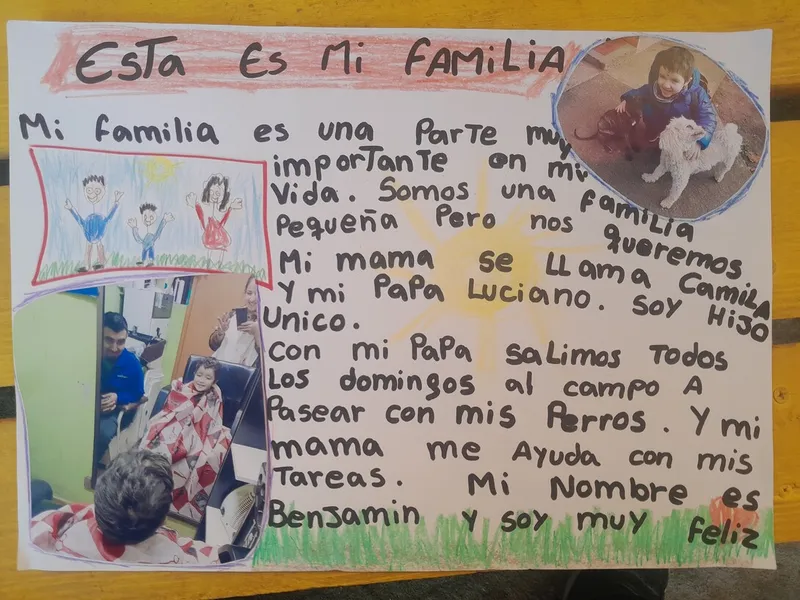 Esta es mi familia
Mi familia es una parte muy
importante en mi
vida. Somos una familia
pequeña pero nos queremos
Mi mama se llama Camila
Y mi papa Luciano. Soy hijo
unico.
Con mi papa salimos todos
los domingos al campo a
pasear con mis perros. Y mi
mama me ayuda con mis
tareas. Mi nombre es
Benjamin y soy muy feliz